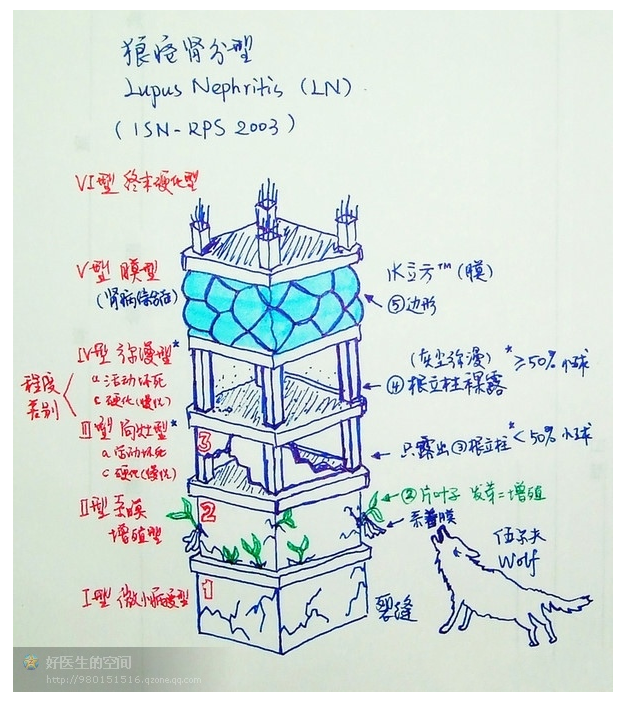 狼疮肾分型
Lupus Nephritis (LN)
(ISN-RPS 2003)
VI型 终末硬化型
V型 膜型
(肾病综合征)
水立方™(膜)
⑤边形
IV型 弥漫型*
a 活动坏死
c 硬化(慢性)
程度
差别
(灰尘弥漫)
*≥50%小球
④根立柱裸露
III型 局灶型*
a 活动坏死
c 硬化(慢性)
3
只露出③根立柱*<50%小球
II型 系膜
增殖型
2
②片叶子 发芽=增殖
系着膜
I型 微小病变型
1
裂缝
伍尔夫
Wolf
好医生的空间
http://980151516.qzone.qq.com